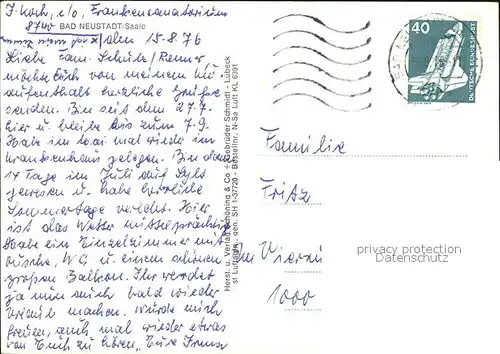 J. Koch, c/o, Frankensanatorium
8740 BAD NEUSTADT-Saale
den 15.8.76
Liebe Fam. Schulz / Renner
möchte Euch von meinem Ku-
aufenthalt herzliche Grüße
senden. Bin seit dem 27.7.
hier u. bleibe bis zum 7.9.
Habe im Mai mal wieder im
Krankenhaus gelegen. Bin dann
14 Tage im Juli auf Sylt
gewesen u. habe herrliche
Sommertage verlebt. Hier
ist das Wetter mittelprächtig.
Habe ein Einzelzimmer mit
Dusche, WC u. einem schönen
großen Balkon. Ihr werdet
ja nun auch bald wieder
Urlaub machen. Würde mich
freuen, auch mal wieder etwas
von Euch zu hören, Eure Irma
Herst. u. Verlag Schöning & Co + Gebrüder Schmidt - Lübeck
SH 1-37720 - Bestellnr. N-Sa Luft KL 6391
40
DEUTSCHE BUNDESPOST
BAD
Familie
Fritz
1000
privacy protection
Datenschutz